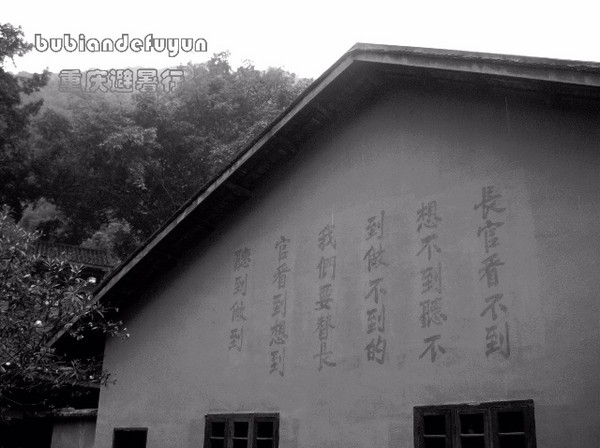 bubiandefuyun
重庆避暑行
長官看不到
想不到聽不
到做不到的
我們要替長
官看到想到
聽到做到